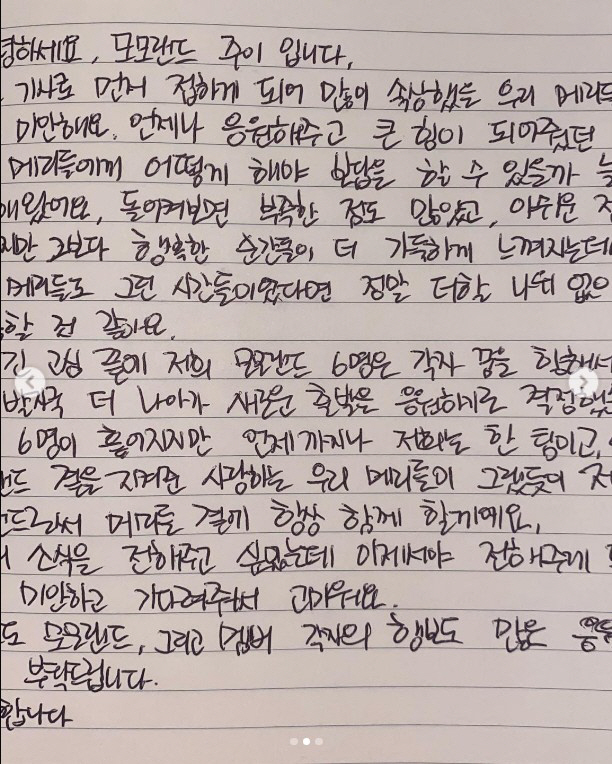 녕하세요, 모모랜드 주이 입니다.
기사로 먼저 접하게 되어 많이 속상했을 우리 메리들
미안해요. 언제나 응원해주고 큰 힘이 되어줬던
메리들에게 어떻게 해야 보답을 할 수 있을까 늘
해왔어요, 돌이켜보면 부족한 점도 많았고, 아쉬운
지만 그보다 행복한 순간들이 더 가득하게 느껴지는데
메리들도 그런 시간들이였다면 정말 더할 나위 없이
할 것 같아요.
긴 고심 끝에 저희 모모랜드 6명은 각자 꿈을 향해서
발자국 더 나아가 새로운 출발을 응원하기로 결정했
6명이 흩어지지만 언제까지나 저희는 한 팀이고,
랜드 곁을 지켜준 사랑하는 우리 메리들이 그랬듯이 저
랜드로서 메리들 곁에 항상 함께 할게예요,
소식을 전해주고 싶었는데 이제서야 전해주게
미안하고 기다려줘서 고마워요.
도 모모랜드, 그리고 멤버 각자의 행보도 많은 응원
부탁드립니다.
합니다